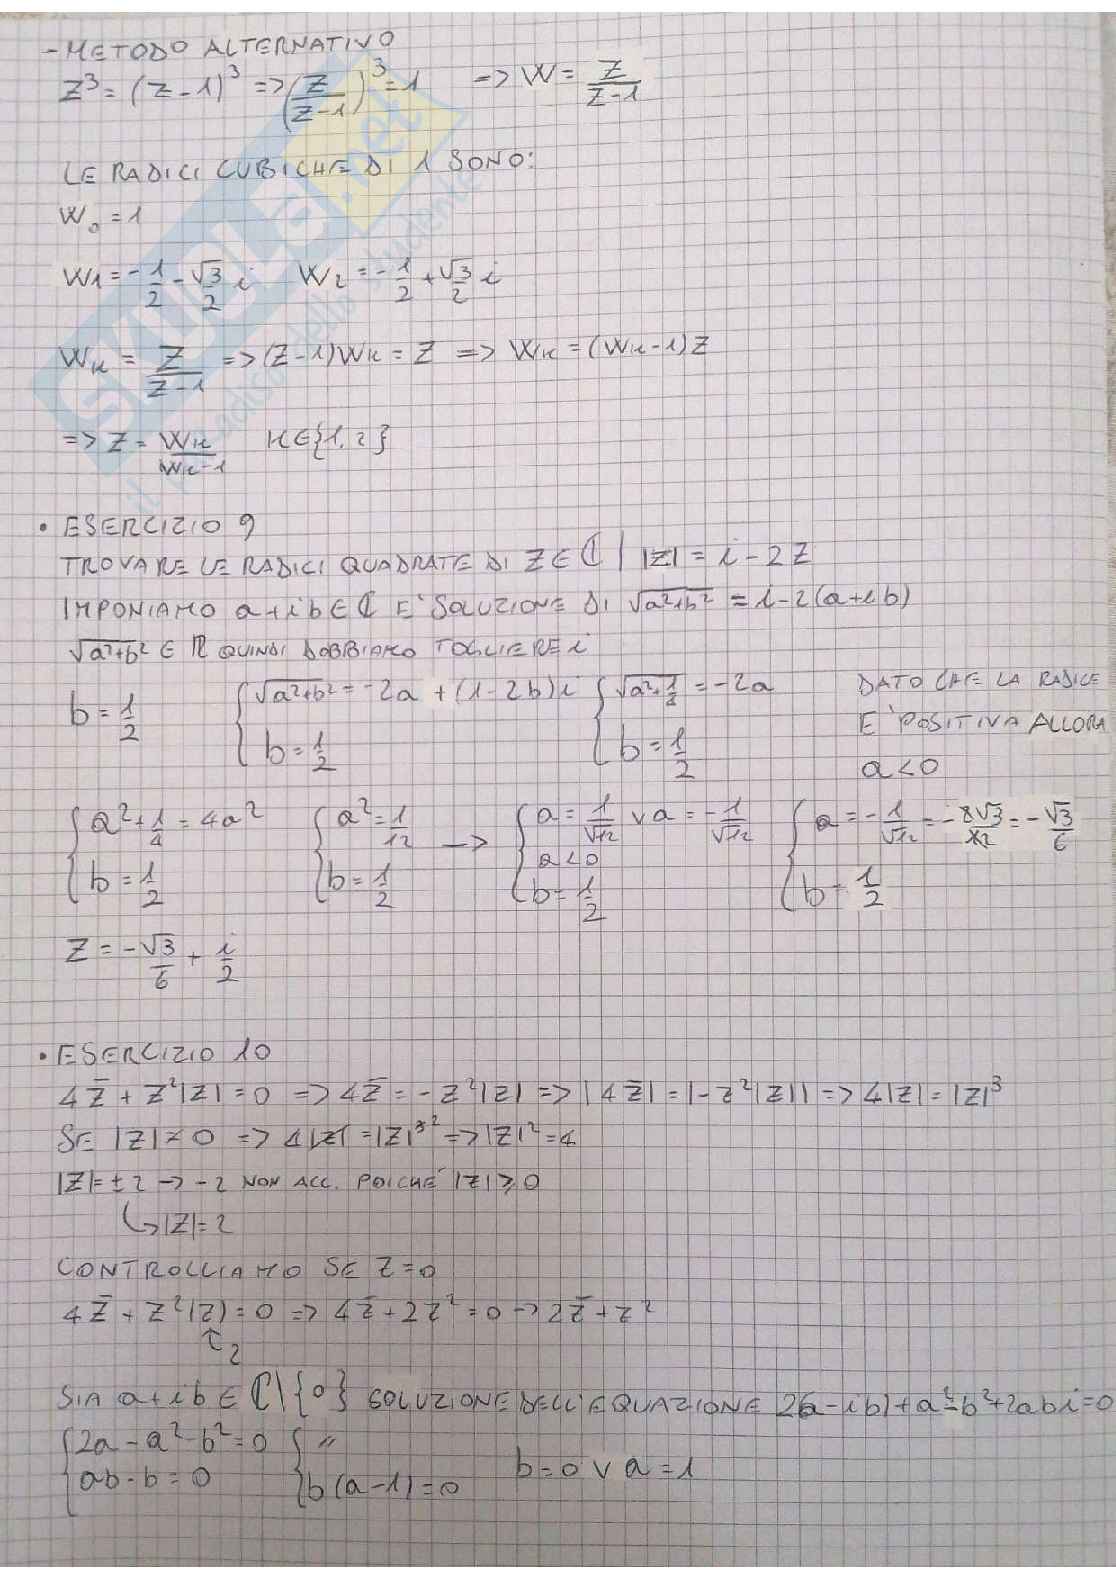 - METODO ALTERNATIVO
Z³ = (Z-1)³ => (Z/(Z-1))³ = 1 => W = Z/(Z-1)
LE RADICI CUBICHE DI 1 SONO:
W₀ = 1
W1 = -1/2 - √3/2 i   W₂ = -1/2 + √3/2 i
Wκ = Z/(Z-1) => (Z-1)Wκ = Z => Wκ = (Wκ-1)Z
=> Z = Wκ/(Wκ-1)   K∈{1,2}
• ESERCIZIO 9
TROVARE LE RADICI QUADRATE DI Z∈ℂ | |Z| = i - 2Z
IMPONIAMO a+ib∈ℂ E' SOLUZIONE DI √(a²+b²) = i-2(a+ib)
√(a²+b²) ∈ ℝ QUINDI DOBBIAMO TOGLIERE i
b = 1/2   { √(a²+b²) = -2a + (1-2b)i   { √(a²+1/4) = -2a   DATO CHE LA RADICE
{ b = 1/2   { b = 1/2   E' POSITIVA ALLORA
a<0
{ a²+1/4 = 4a²   { a² = 1/12 -> { a = 1/√12 ∨ a = -1/√12   { a = -1/√12 = -2√3/12 = -√3/6
a<0
{ b = 1/2   { b = 1/2   { b = 1/2   { b = 1/2
Z = -√3/6 + i/2
• ESERCIZIO 10
4Z̄ + Z²|Z| = 0 => 4Z̄ = -Z²|Z| => |4Z̄| = |-Z²|Z|| => 4|Z| = |Z|³
SE |Z| ≠ 0 => 4|Z| = |Z|³ ² => |Z|² = 4
|Z| = ±2 -> -2 NON ACC. POICHÉ |Z| ≥ 0
↳ |Z| = 2
CONTROLLIAMO SE Z=0
4Z̄ + Z²|Z| = 0 => 4Z̄ + 2Z² = 0 -> 2Z̄ + Z²
↑ 2
SIA a+ib∈ℂ\{0} SOLUZIONE DELL'EQUAZIONE 2(a-ib)+a²-b²+2abi=0
{ 2a-a²-b²=0   { "
{ ab-b=0   { b(a-1)=0   b=0 ∨ a=1
SKUOLA.net
il paradiso dello studente